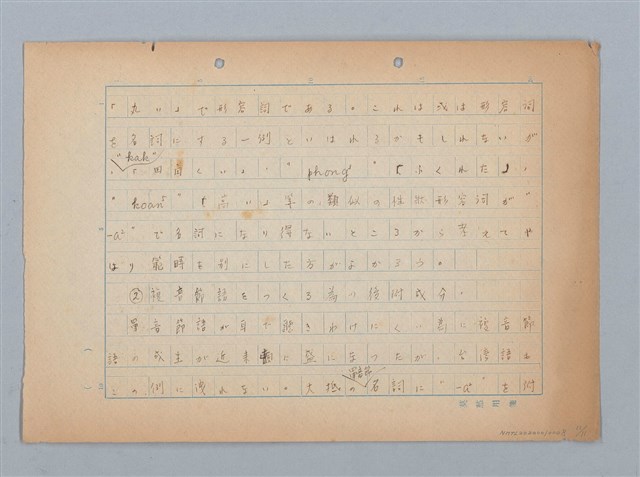 「丸い」で形容詞である。これは或は形容詞
を名詞にする一例といはれるかもしれないが
"kak"
、「四角くい」、"phong" 「ふくれた」、
"koan" 「高い」等の類似の性状形容詞が"
-a" で名詞になり得ないところから考えてや
はり 能時を別にした方がよからう。
② 複音節語をつくる為の後附成分。
單音節語が耳で聴きわけにくい為に複音節
語の成生が近来 に盛になつたが、台湾語も
この例に洩れない。大抵の
單音節
名詞に "-a" を附